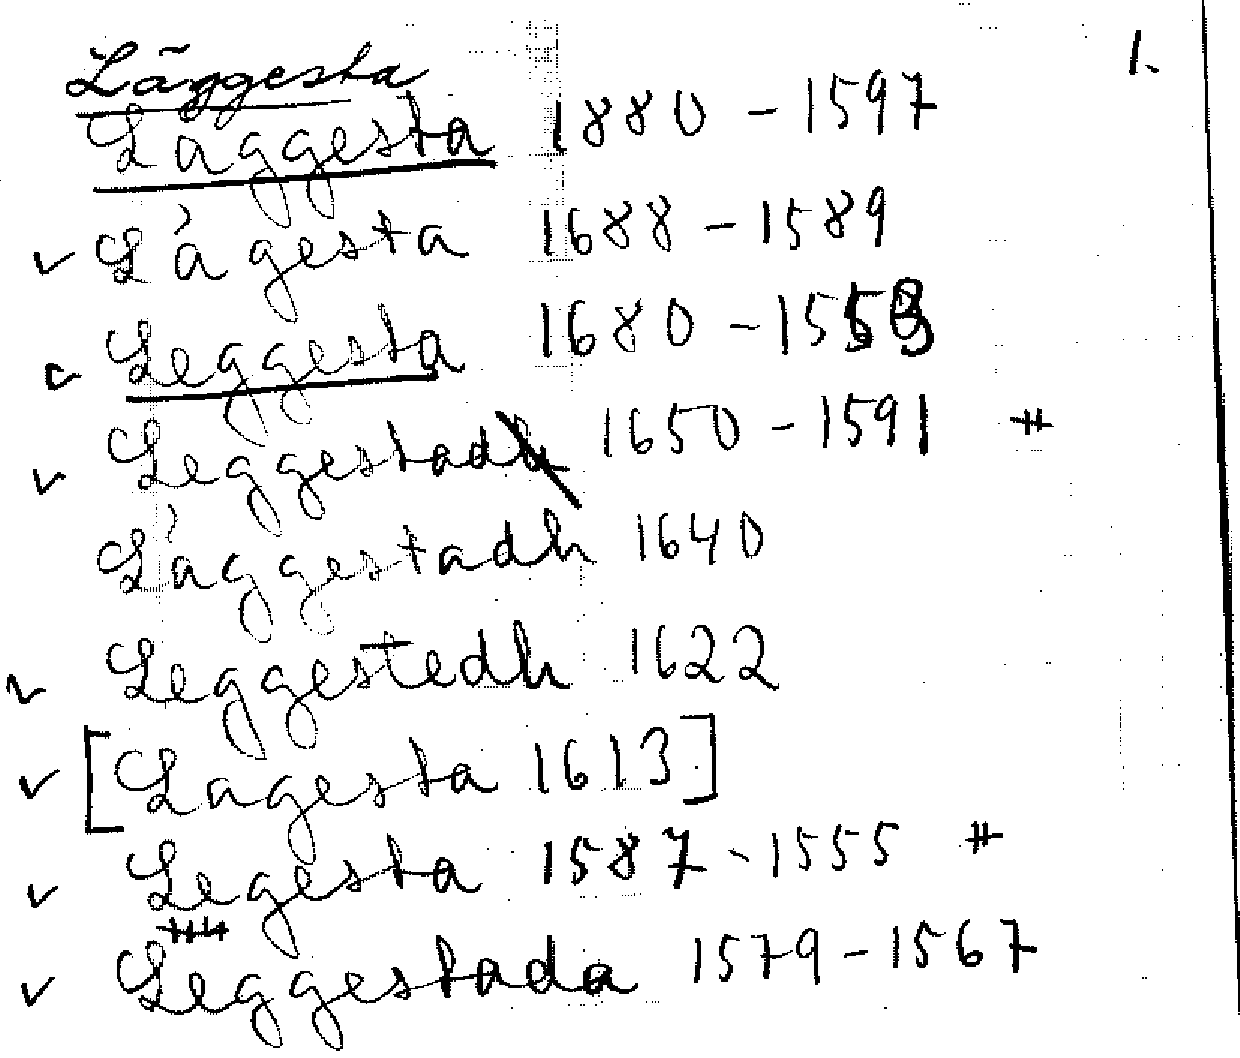 1.
Läggesta
Läggesta 1880 - 1597
Lägesta 1688 - 1589
Leggesta 1680 - 1553
Leggestad 1650 - 1591 #
Läggestadh 1640
Leggestedh 1622
[Lagesta 1613]
Legesta 1587 - 1555 #
Leggestada 1579 - 1567